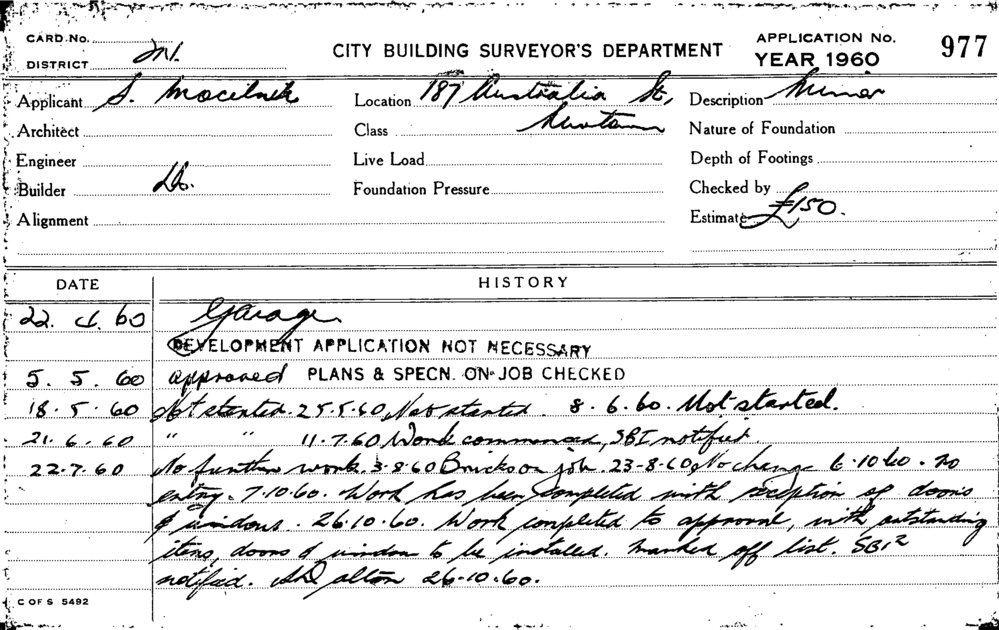 CARD No.
DISTRICT M.
CITY BUILDING SURVEYOR'S DEPARTMENT
APPLICATION No. 977
YEAR 1960
Applicant S. Mocilnik Location 187 Australia St, Description Minor
Architect Class Newtown Nature of Foundation
Engineer Live Load Depth of Footings
Builder Do. Foundation Pressure Checked by
Alignment Estimate £150.
DATE HISTORY
22. 4. 60 Garage
DEVELOPMENT APPLICATION NOT NECESSARY
5. 5. 60 approved PLANS & SPECN. ON JOB CHECKED
18. 5. 60 Not started. 25.5.60 Not started. 8. 6. 60. Not started.
21. 6. 60 " " 11.7.60 Work commenced, SBI notified.
22.7.60 No further work. 3.8.60 Bricks on job. 23-8-60 No change 6.10.60. no
entry. 7.10.60. Work has been completed with exception of doors
& windows. 26.10.60. Work completed to approval, with outstanding
items, doors & window to be installed. Marked off list. SBI2
notified. Dalton 26.10.60.
C OF S 5492